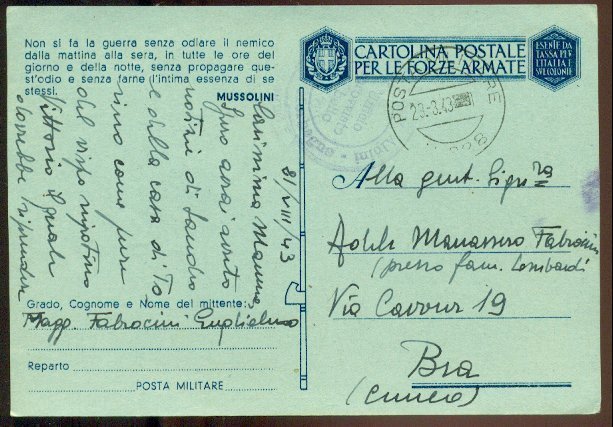 Non si fa la guerra senza odiare il nemico
dalla mattina alla sera, in tutte le ore del
giorno e della notte, senza propagare que-
st'odio e senza farne l'intima essenza di se
stessi.
MUSSOLINI
CARTOLINA POSTALE
PER LE FORZE ARMATE
ESENTE DA
TASSA PER
L'ITALIA E
SUE COLONIE
POSTA
RE
23.8.43
Alla gent. Sig.ra
Adele Manassero Fabrocini
(presso fam. Lombardi
Via Cavour 19
Bra
(Cuneo)
/VIII/43
Carissima Mamma
assai
notizie di Sandro
e della casa di To
rino come pure
del vispo nipotino
Vittorio
dovrebbe
Grado, Cognome e Nome del mittente:
Magg. Fabrocini Guglielmo
Reparto
POSTA MILITARE